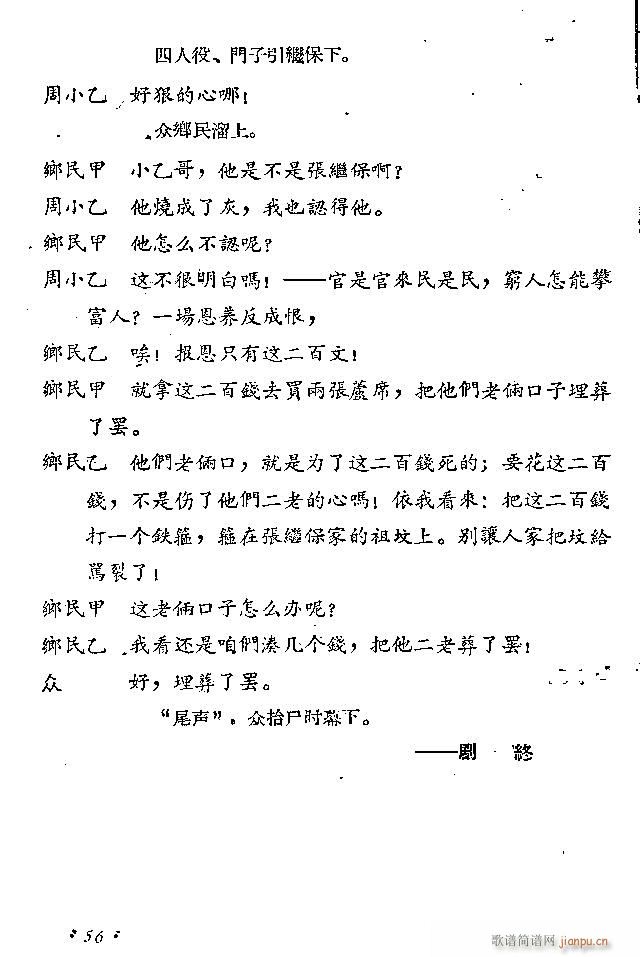 四人役、門子引繼保下。
周小乙 好狠的心哪！
众鄉民溜上。
鄉民甲 小乙哥，他是不是張繼保啊？
周小乙 他燒成了灰，我也認得他。
鄉民甲 他怎么不認呢？
周小乙 这不很明白嗎！——官是官來民是民，窮人怎能攀
富人？一場恩养反成恨，
鄉民乙 唉！报恩只有这二百文！
鄉民甲 就拿这二百錢去買兩張蘆席，把他們老倆口子埋葬
了罢。
鄉民乙 他們老倆口，就是为了这二百錢死的；要花这二百
錢，不是伤了他們二老的心嗎！依我看來：把这二百錢
打一个鉄箍，箍在張繼保家的祖坟上。别讓人家把坟給
駡裂了！
鄉民甲 这老倆口子怎么办呢？
鄉民乙 我看还是咱們湊几个錢，把他二老葬了罢！
众 好，埋葬了罢。
“尾声”，众抬尸时幕下。
——剧 終
56
歌谱简谱网 jianpu.cn